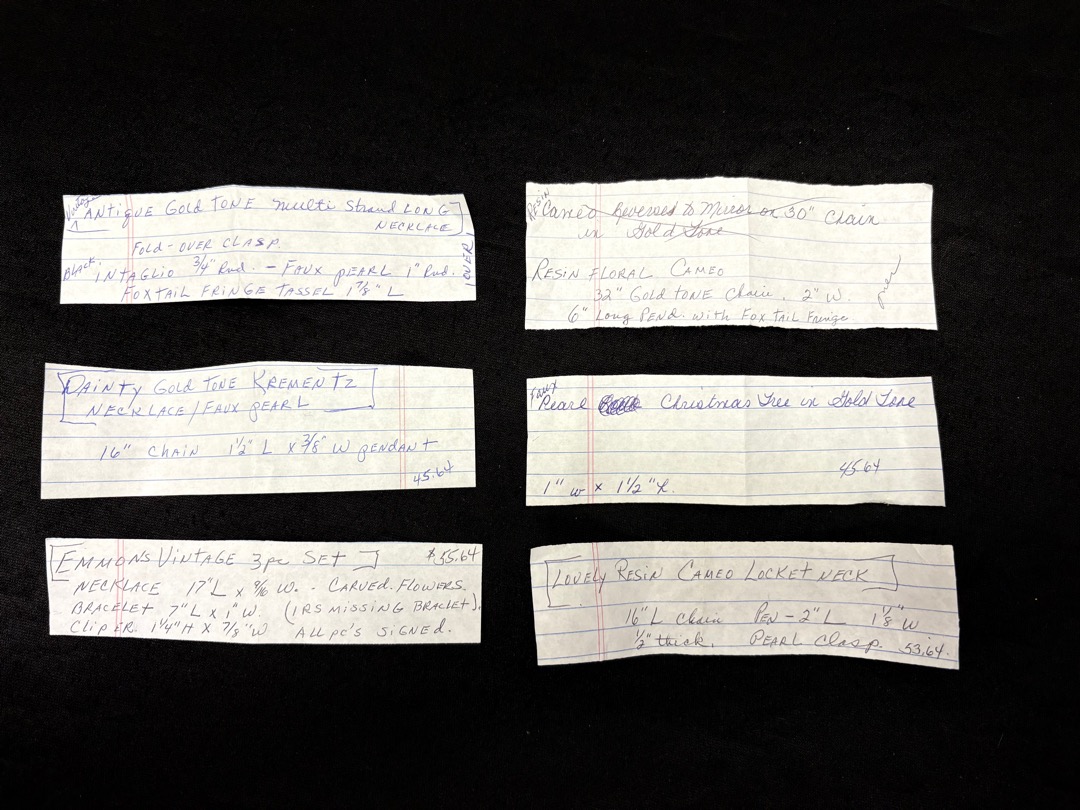 Vintage
ANTIQUE GOLD TONE multi Strand LONG
NECKLACE
FOLD-OVER CLASP.
BLACK INTAGLIO 3/4" Rnd. - FAUX PEARL 1" Rnd.
FOXTAIL FRINGE TASSEL 1 7/8" L
OVER
DAINTY GOLD TONE KREMENTZ
NECKLACE / FAUX PEARL
16" CHAIN 1 1/2" L x 3/8" W PENDANT
45.64
EMMONS VINTAGE 3pc SET $55.64
NECKLACE 17" L x 9/16 W. - CARVED FLOWERS.
BRACELET 7" L x 1" W. (1 RS MISSING BRACLET).
CLIP ER. 1 1/4" H x 7/8" W ALL pc's SIGNED.
RESIN
Cameo Reversed to Mirror on 30" Chain
in Gold Tone
RESIN FLORAL CAMEO
32" GOLD TONE Chain. 2" W.
6" Long PEND. with FOX TAIL Fringe
FAUX
Pearl Christmas Tree in Gold Tone
45.64
1" w x 1 1/2" L.
LOVELY RESIN CAMEO LOCKET NECK
16" L chain PEN - 2" L 1 1/8" W
1/2" thick. PEARL Clasp. 53.64